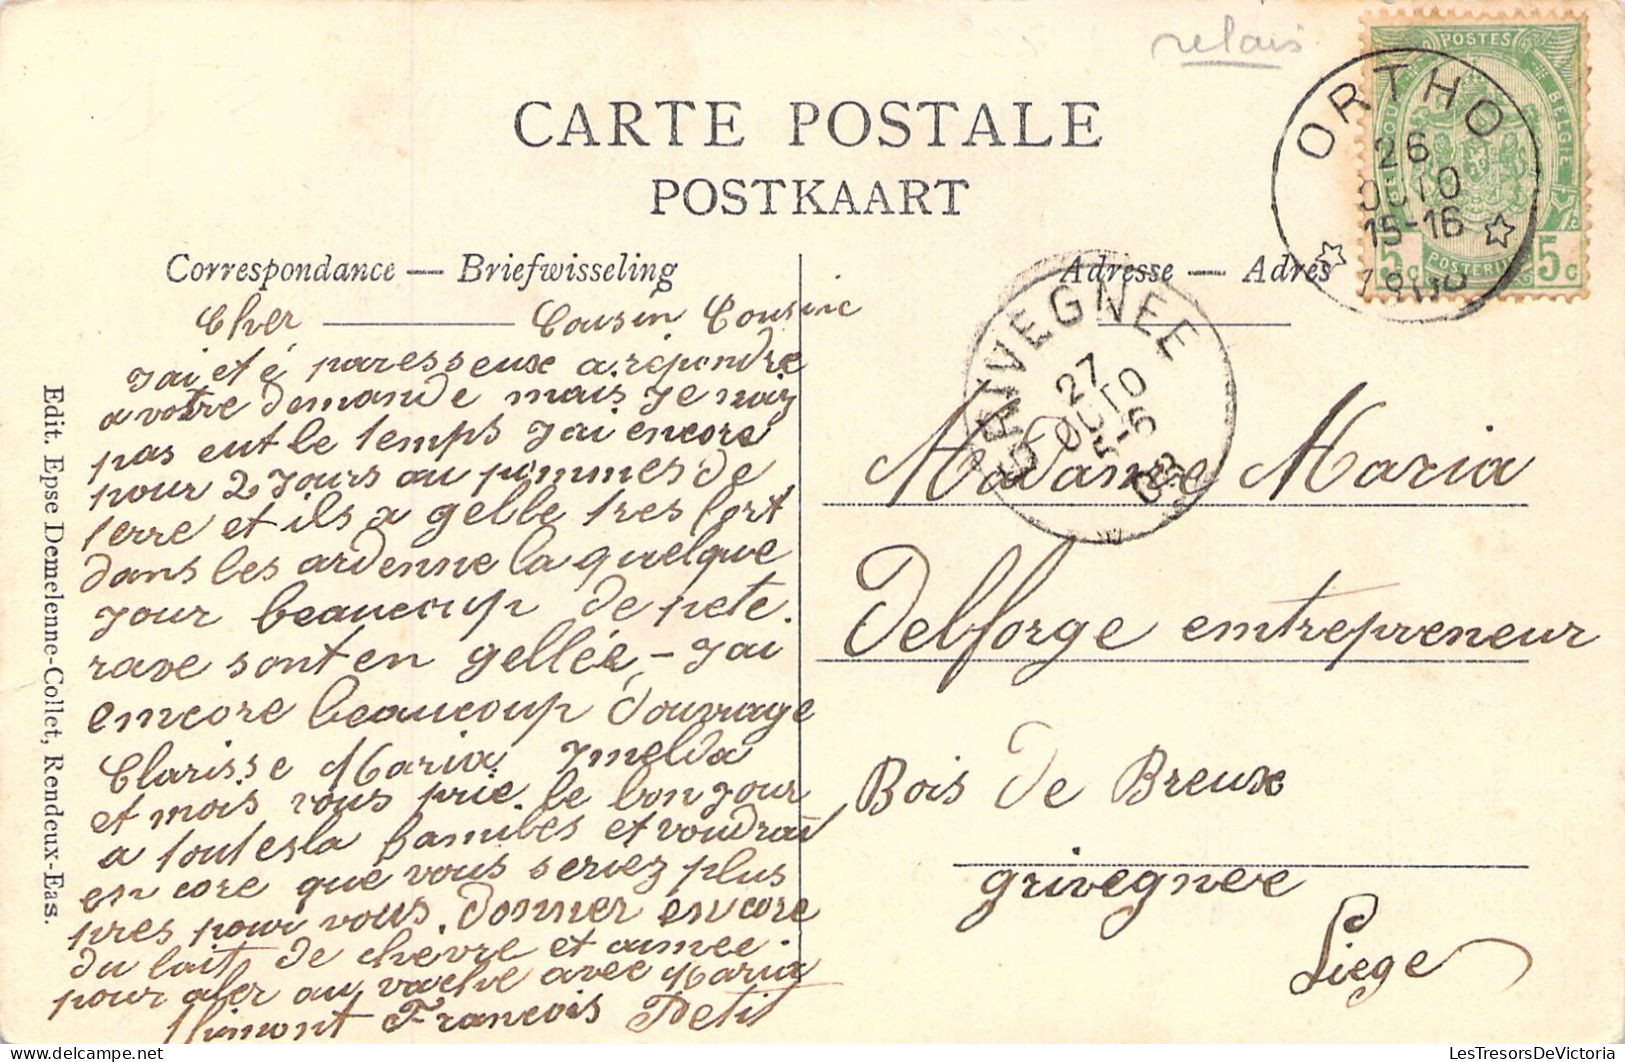 relais
CARTE POSTALE
POSTKAART
Correspondance — Briefwisseling
Adresse — Adres
POSTES
BELGIE
5c POSTERIJEN 5c
ORTHO
26
OCTO
15-16
GRIVEGNEE
27
OCTO
5-6
08
Cher ——— Cousin Cousine
J'ai eté paresseux a répondre
a votre demande mais je naiz
pas eut le temps J'ai encore
pour 2 Jours au pommes de
terre et ils a gelle tres fort
dans les ardenne la quelque
Jour beaucoup de pete.
rave sont en gellée – J'ai
emcore beaucoup d'ouvrage
Clarisse Maria Jmelda
et mois vous prie. le bonjour
a toutes la familes et voudrai
encore que vous seriez plus
pres pour vous. donner encore
du lait de chevre et aimee.
pour aler au vache avec Maria
François Petit
Madame Maria
Delforge emtrepreneur
Bois de Breux
grivegnee
Liege
Edit. Epse Demelenne-Collet, Rendeux-Bas.
LesTresorsDeVictoria.com